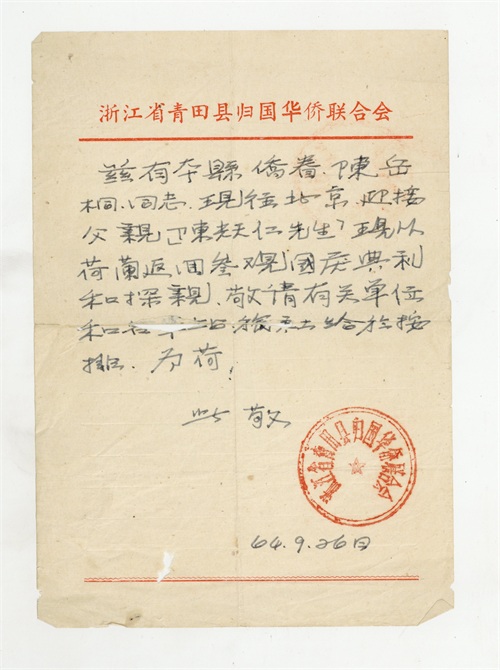 浙江省青田县归国华侨联合会
兹有本縣僑眷.陳岳
桐.同志.現往北京迎接
父親(陳天仁先生)現从
荷蘭返回参观國庆典利
和探親.敬请有关单位
和
排.为荷!
此敬
浙江省青田县归国华侨联合会
64.9.26日